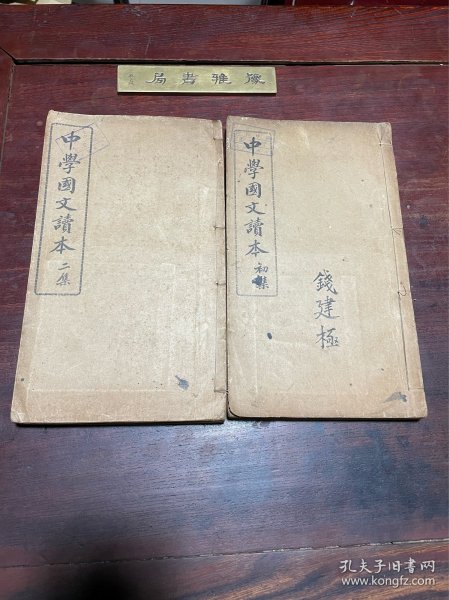 豫雅書局
中學國文讀本 二集
中學國文讀本 初集
錢建極
孔夫子旧书网
www.kongfz.com